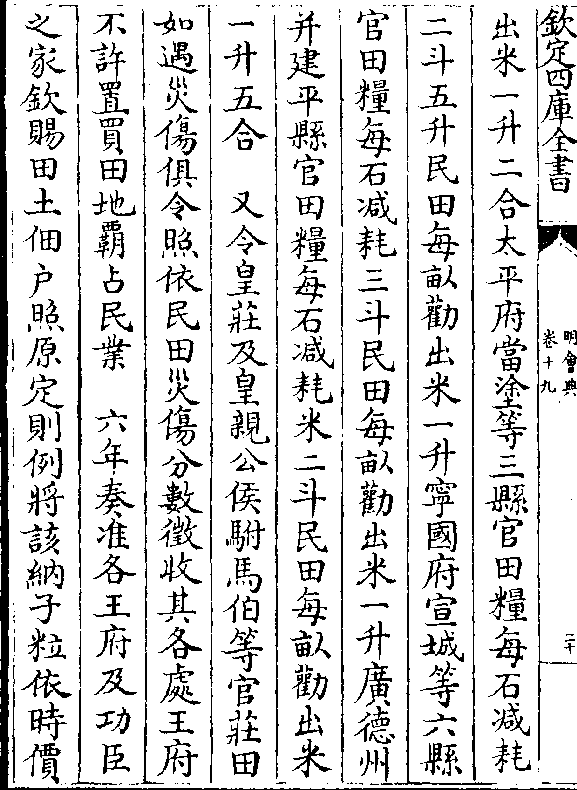 欽定四庫全書
明會典
卷十九
二十
出米一升二合太平府當塗等三縣官田糧每石減耗
二斗五升民田每畝勸出米一升寧國府宣城等六縣
官田糧每石减耗三斗民田每畝勸出米一升廣德州
并建平縣官田糧每石減耗米二斗民田每畝勸出米
一升五合　又令皇莊及皇親公侯駙馬伯等官莊田
如遇災傷俱令照依民田災傷分數徵收其各處王府
不許置買田地霸占民業　六年奏准各王府及功臣
之家欽賜田土佃户照原定則例將該納子粒依時價